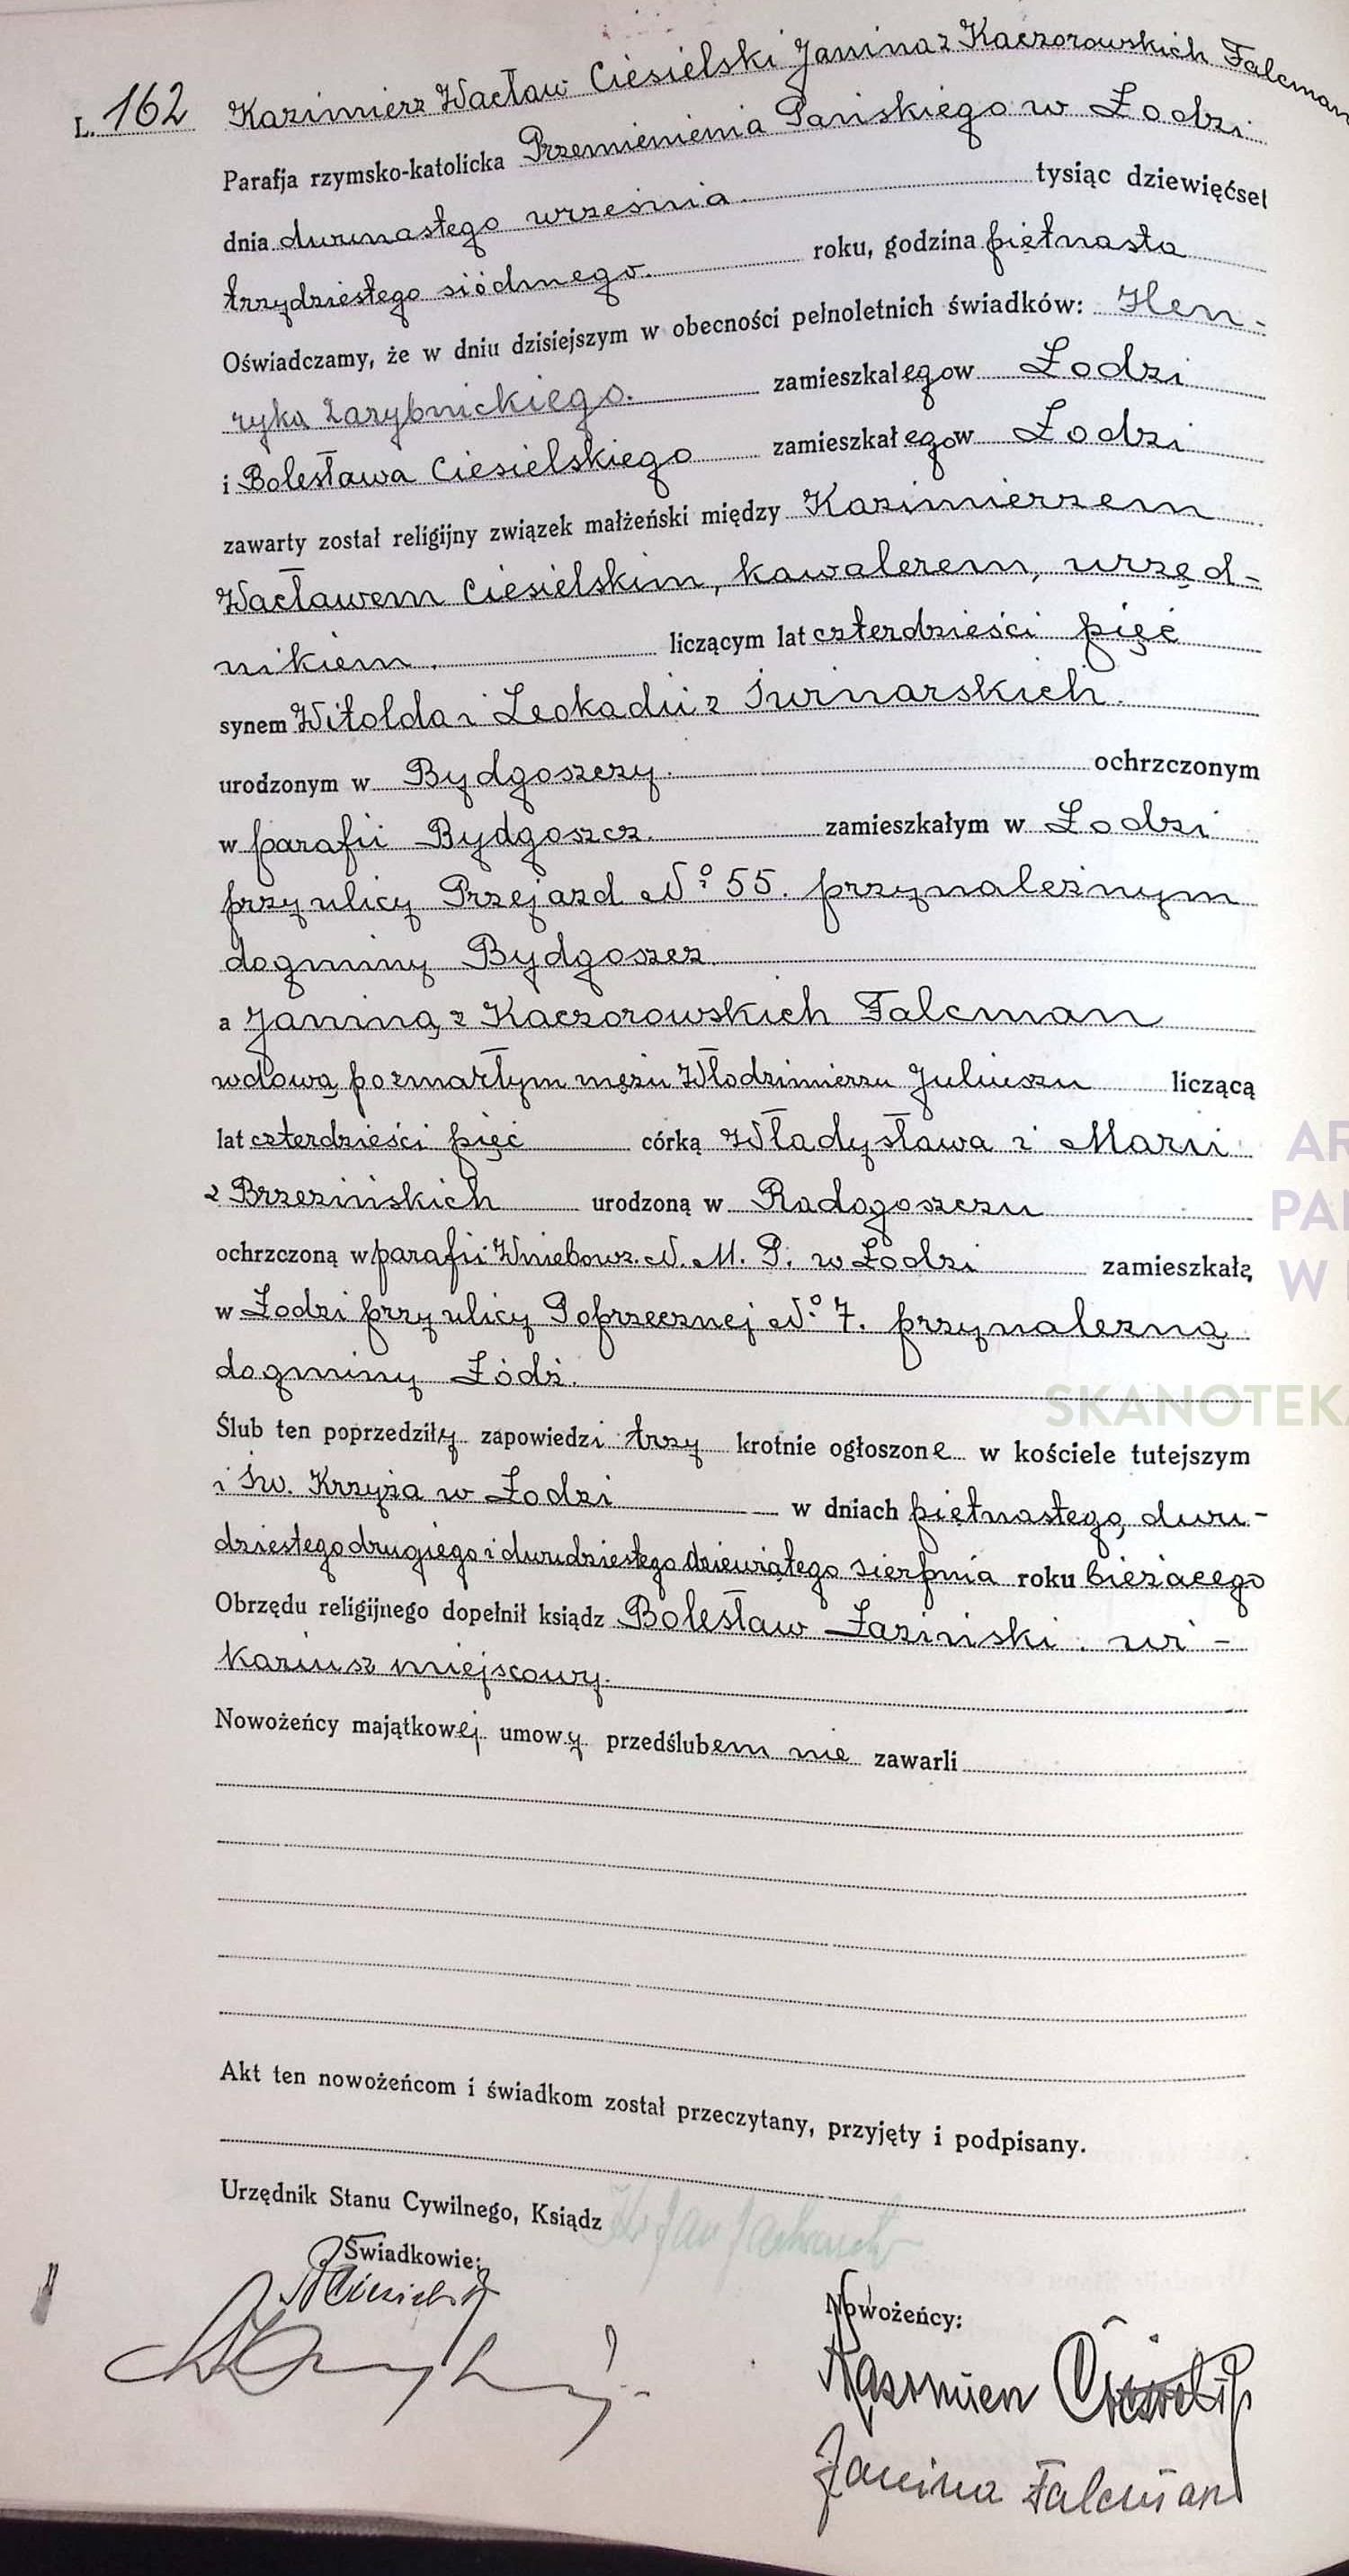 L. 162 Kazimierz Wacław Ciesielski Janina z Kaczorowskich Falcman
Parafja rzymsko-katolicka Przemienienia Pańskiego w Łodzi
dnia dwunastego września tysiąc dziewięćset
trzydziestego siódmego. roku, godzina piętnasta
Oświadczamy, że w dniu dzisiejszym w obecności pełnoletnich świadków: Hen-
ryka Zarybnickiego. zamieszkałego w Łodzi
i Bolesława Ciesielskiego zamieszkałego w Łodzi
zawarty został religijny związek małżeński między Kazimierzem
Wacławem Ciesielskim, kawalerem, urzęd-
nikiem. liczącym lat czterdzieści pięć
synem Witolda i Leokadii z Świnarskich.
urodzonym w Bydgoszczy. ochrzczonym
w parafii Bydgoszcz. zamieszkałym w Łodzi
przy ulicy Przejazd No 55. przynależnym
do gminy Bydgoszcz.
a Janiną z Kaczorowskich Falcman
wdową po zmarłym mężu Włodzimierzu Juliuszu liczącą
lat czterdzieści pięć córką Władysława i Marii
z Brzezińskich urodzoną w Radogoszczu
ochrzczoną w parafii Wniebowz. N. M. P. w Łodzi zamieszkałą
w Łodzi przy ulicy Poprzecznej No 7. przynależną
do gminy Łódź.
Ślub ten poprzedziły zapowiedzi trzy krotnie ogłoszone w kościele tutejszym
i Św. Krzyża w Łodzi w dniach piętnastego, dwu-
dziestego drugiego i dwudziestego dziewiątego sierpnia roku bieżącego
Obrzędu religijnego dopełnił ksiądz Bolesław Łaziński. wi-
kariusz miejscowy.
Nowożeńcy majątkowej umowy przedślubem nie zawarli
Akt ten nowożeńcom i świadkom został przeczytany, przyjęty i podpisany.
Urzędnik Stanu Cywilnego, Ksiądz
Świadkowie:
Nowożeńcy:
Kazimierz Ciesielski
Janina Falcman
AR
PA
W
SKANOTEKA